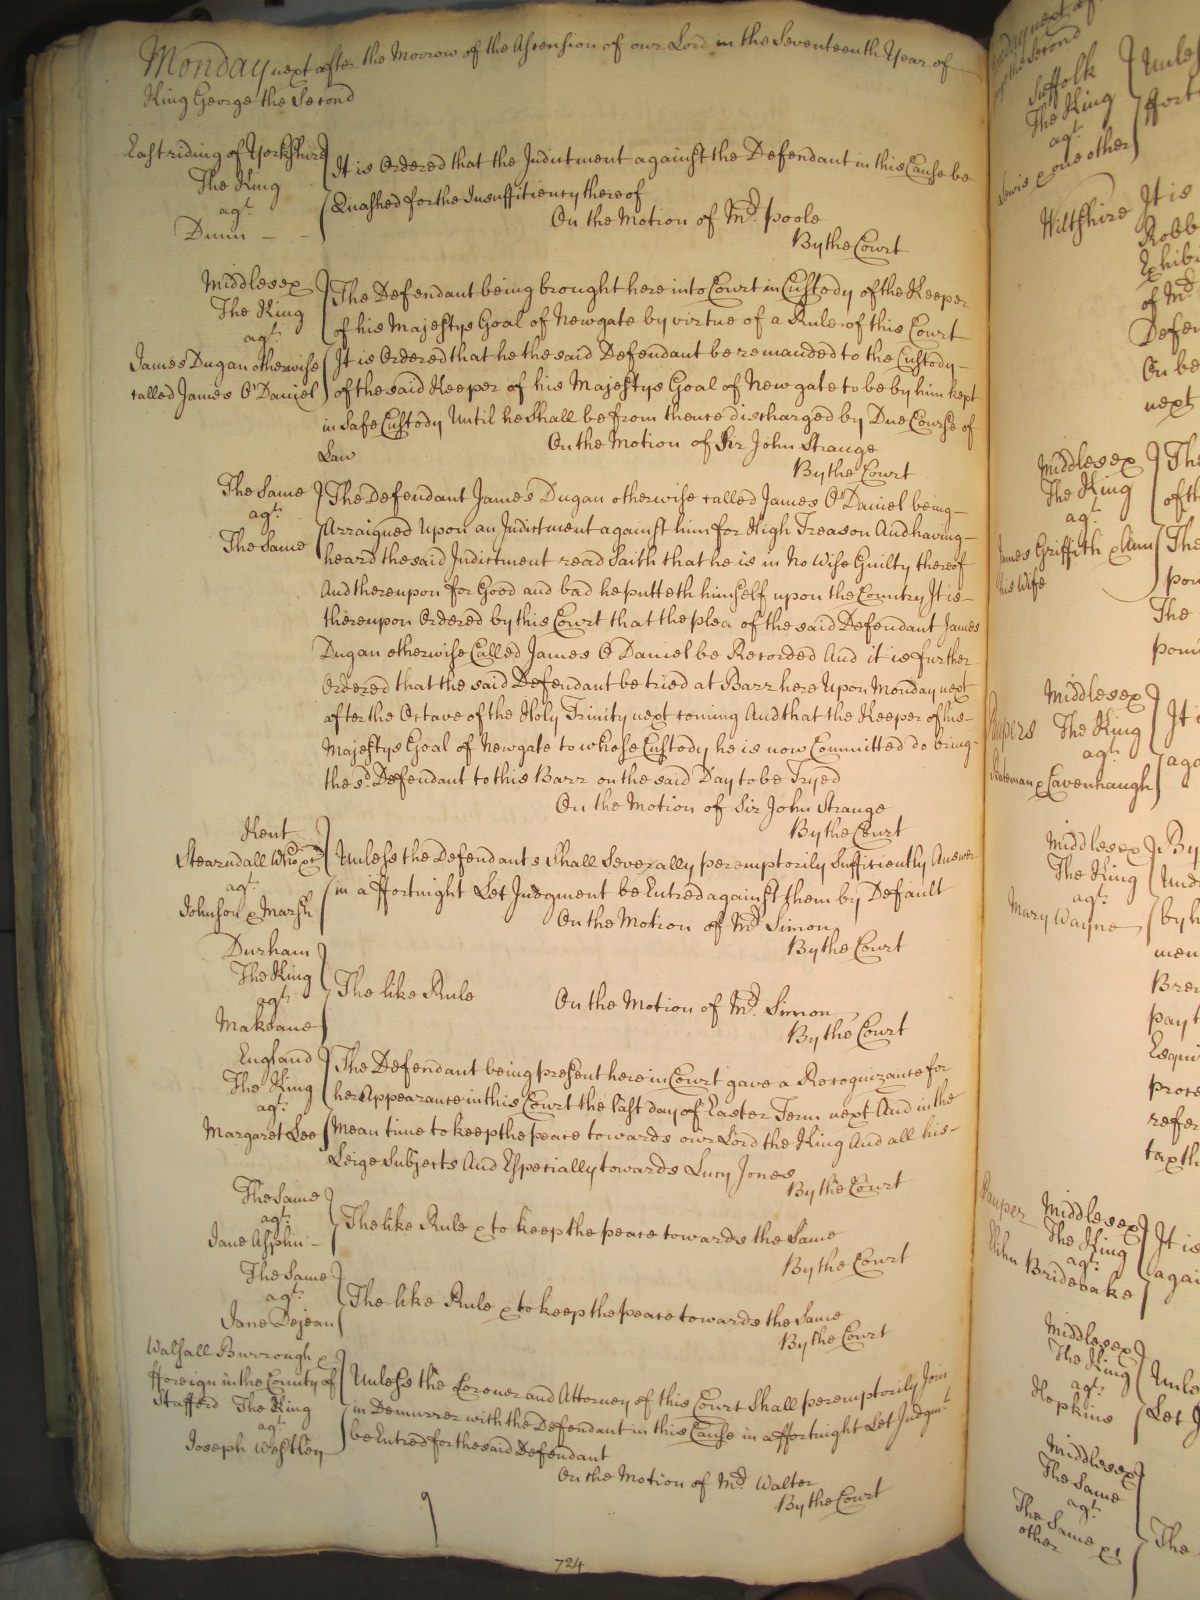 Monday next after the Morrow of the Ascension of our Lord in the Seventeenth Year of
King George the Second
East riding of Yorkshire
The King
agt.
Dunn
It is Ordered that the Indictment against the Defendant in this Cause be
Quashed for the Insufficiency thereof
On the Motion of Mr. Poole
By the Court
Middlesex
The King
agt.
James Dugan otherwise
called James O'Daniel
The Defendant being brought here into Court in Custody of the Keeper
of his Majestys Goal of Newgate by virtue of a Rule of this Court
It is Ordered that he the said Defendant be remanded to the Custody
of the said Keeper of his Majestys Goal of Newgate to be by him kept
in Safe Custody Until he Shall be from thence discharged by Due Course of
Law
On the Motion of Sir John Strange
By the Court
The Same
agt.
The Same
The Defendant James Dugan otherwise called James O'Daniel being
Arraigned upon an Indictment against him for High Treason And having
heard the said Indictment read Saith that he is in No Wise Guilty thereof
And thereupon for Good and bad he putteth himself upon the Country It is
thereupon Ordered by this Court that the plea of the said Defendant James
Dugan otherwise Called James O Daniel be Recorded And it is further
Ordered that the said Defendant be tried at Barr here Upon Monday next
after the Octave of the Holy Trinity next coming And that the Keeper of his
Majestys Goal of Newgate to whose Custody he is now Committed do bring
the sd. Defendant to this Barr on the said Day to be Tryed
On the Motion of Sir John Strange
By the Court
Kent
Stearndall Who &c
agt.
Johnson & Marsh
Unless the Defendants Shall Severally peremptorily Sufficiently Answer
in a ffortnight Let Judgment be Entred against them by Default
On the Motion of Mr. Simon
By the Court
Durham
The King
agt.
Makeane
The like Rule
On the Motion of Mr. Simon
By the Court
England
The King
agt.
Margaret Lee
The Defendant being present here in Court gave a Recognizance for
her Appearance in this Court the last day of Easter Term next And in the
Mean time to keep the peace towards our Lord the King And all his
Leige Subjects And Especially towards Lucy Jones
By the Court
The Same
agt.
Jane Asplin
The like Rule & to keep the peace towards the Same
By the Court
The Same
agt.
Jane Dejean
The like Rule & to keep the peace towards the Same
By the Court
Walsall Burrough &
fforeign in the County of
Stafford The King
agt.
Joseph Westley
Unless the Coroner and Attorney of this Court Shall peremptorily Join
in Demurrer with the Defendant in this Cause in a ffortnight Let Judgmt.
be Entred for the said Defendant
On the Motion of Mr. Walter
By the Court
724
Suffolk
The King
agt.
Lewis & one other
Unless
Wiltshire
It is
of Mr.
On be
next
Middlesex
The King
agt.
James Griffith & Ann
his Wife
The
of th
The
The
Paupers
Middlesex
The King
agt.
Bateman & Cavenhaugh
Middlesex
The King
agt.
Mary Wayne
By
by h
pay t
refer
tax th
Pauper
Middlesex
The King
agt.
Bridecake
It is
agai
Middlesex
The King
agt.
Hopkins
Unle
Let J
Middlesex
The Same
agt.
The Same & 1
other
The